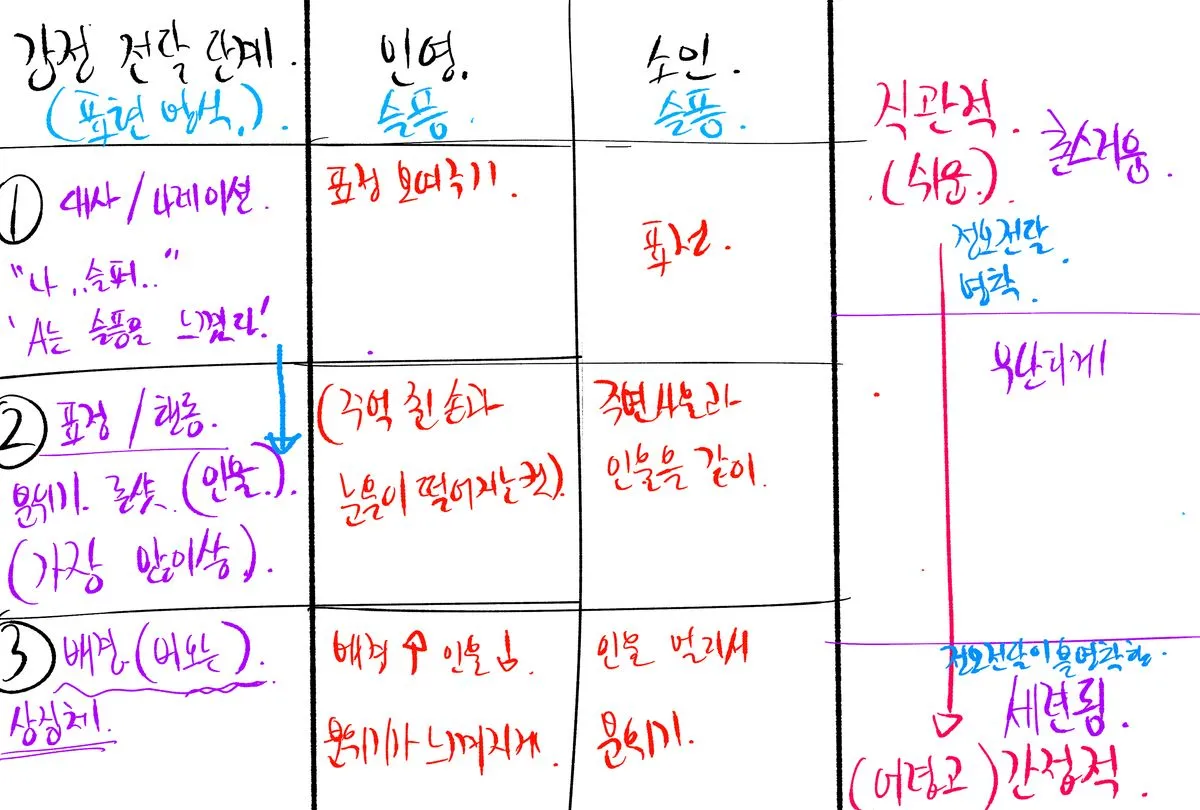 감정 전달 단계.
(표현 방식.).
인영.
슬픔.
소인.
슬픔.
직관적.
(쉬운.).
촌스러움.
① 대사/나레이션.
"나,,슬퍼.."
'A는 슬픔을 느꼈다!
표정 보여주기.
표정.
정보전달
명확.
② 표정/행동.
분위기. 롱샷. (인물.).
(가장 많이씀.).
(주먹 쥔 손과
눈물이 떨어지는 컷).
주변사물과
인물을 같이.
무난하게
③ 배경. (비오는).
상징체.
배경 ↑ 인물
분위기가 느껴지게.
인물 멀리서
분위기.
정보전달이 불명확함.
세련됨.
(어렵고) 간접적.